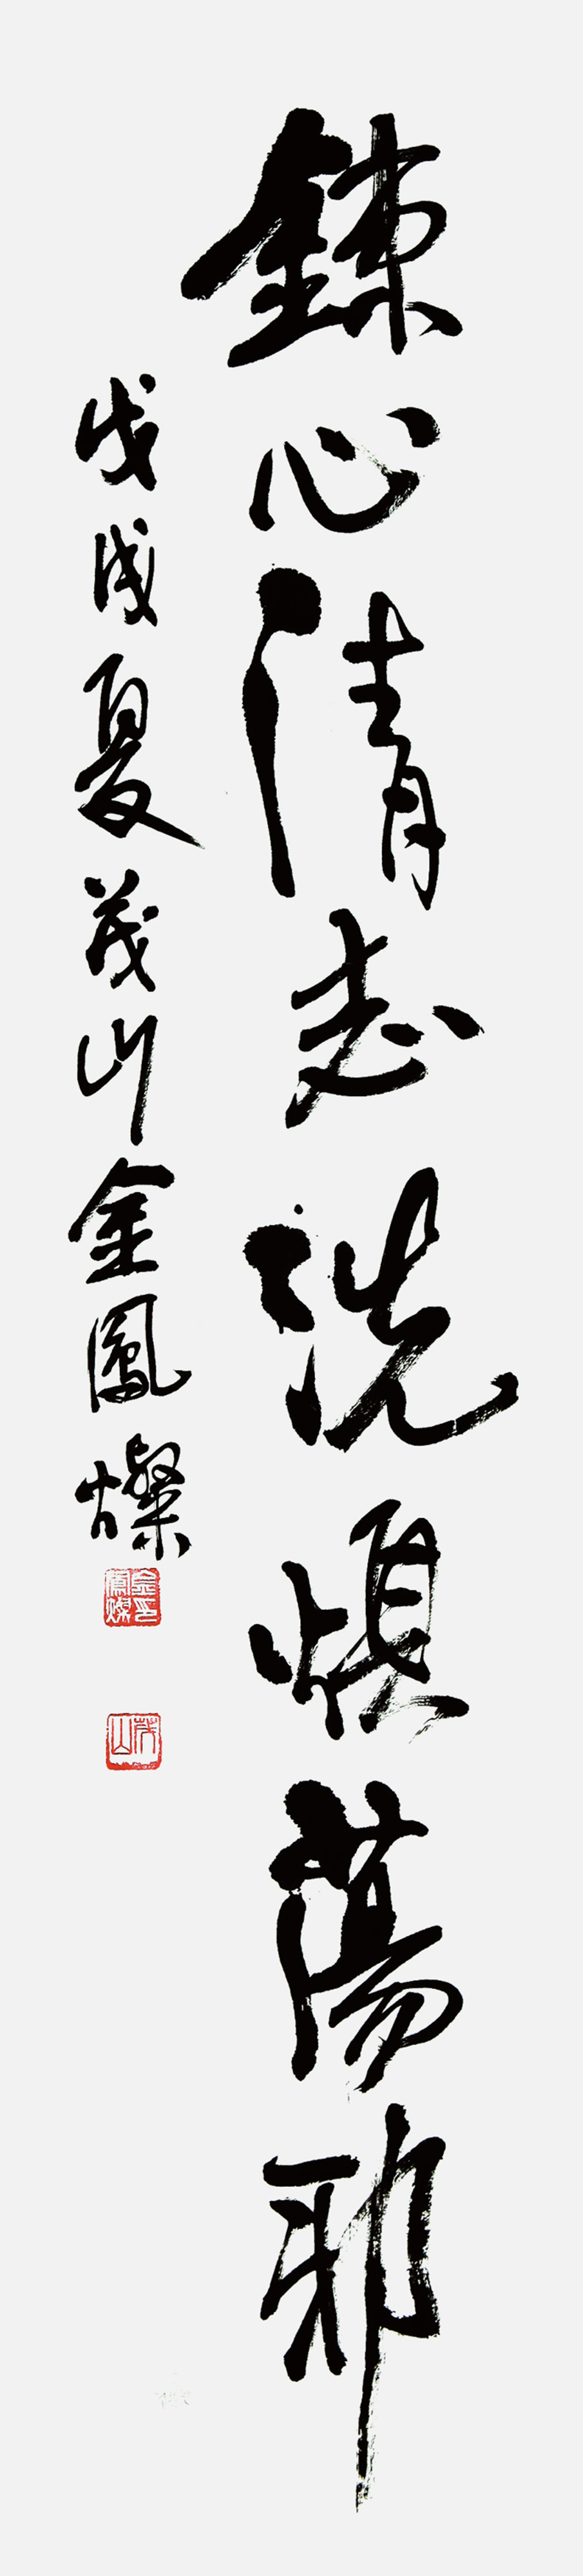 鍊心清志洗煩蕩邪
戊戌夏茂山金鳳燦
金鳳燦印
茂山